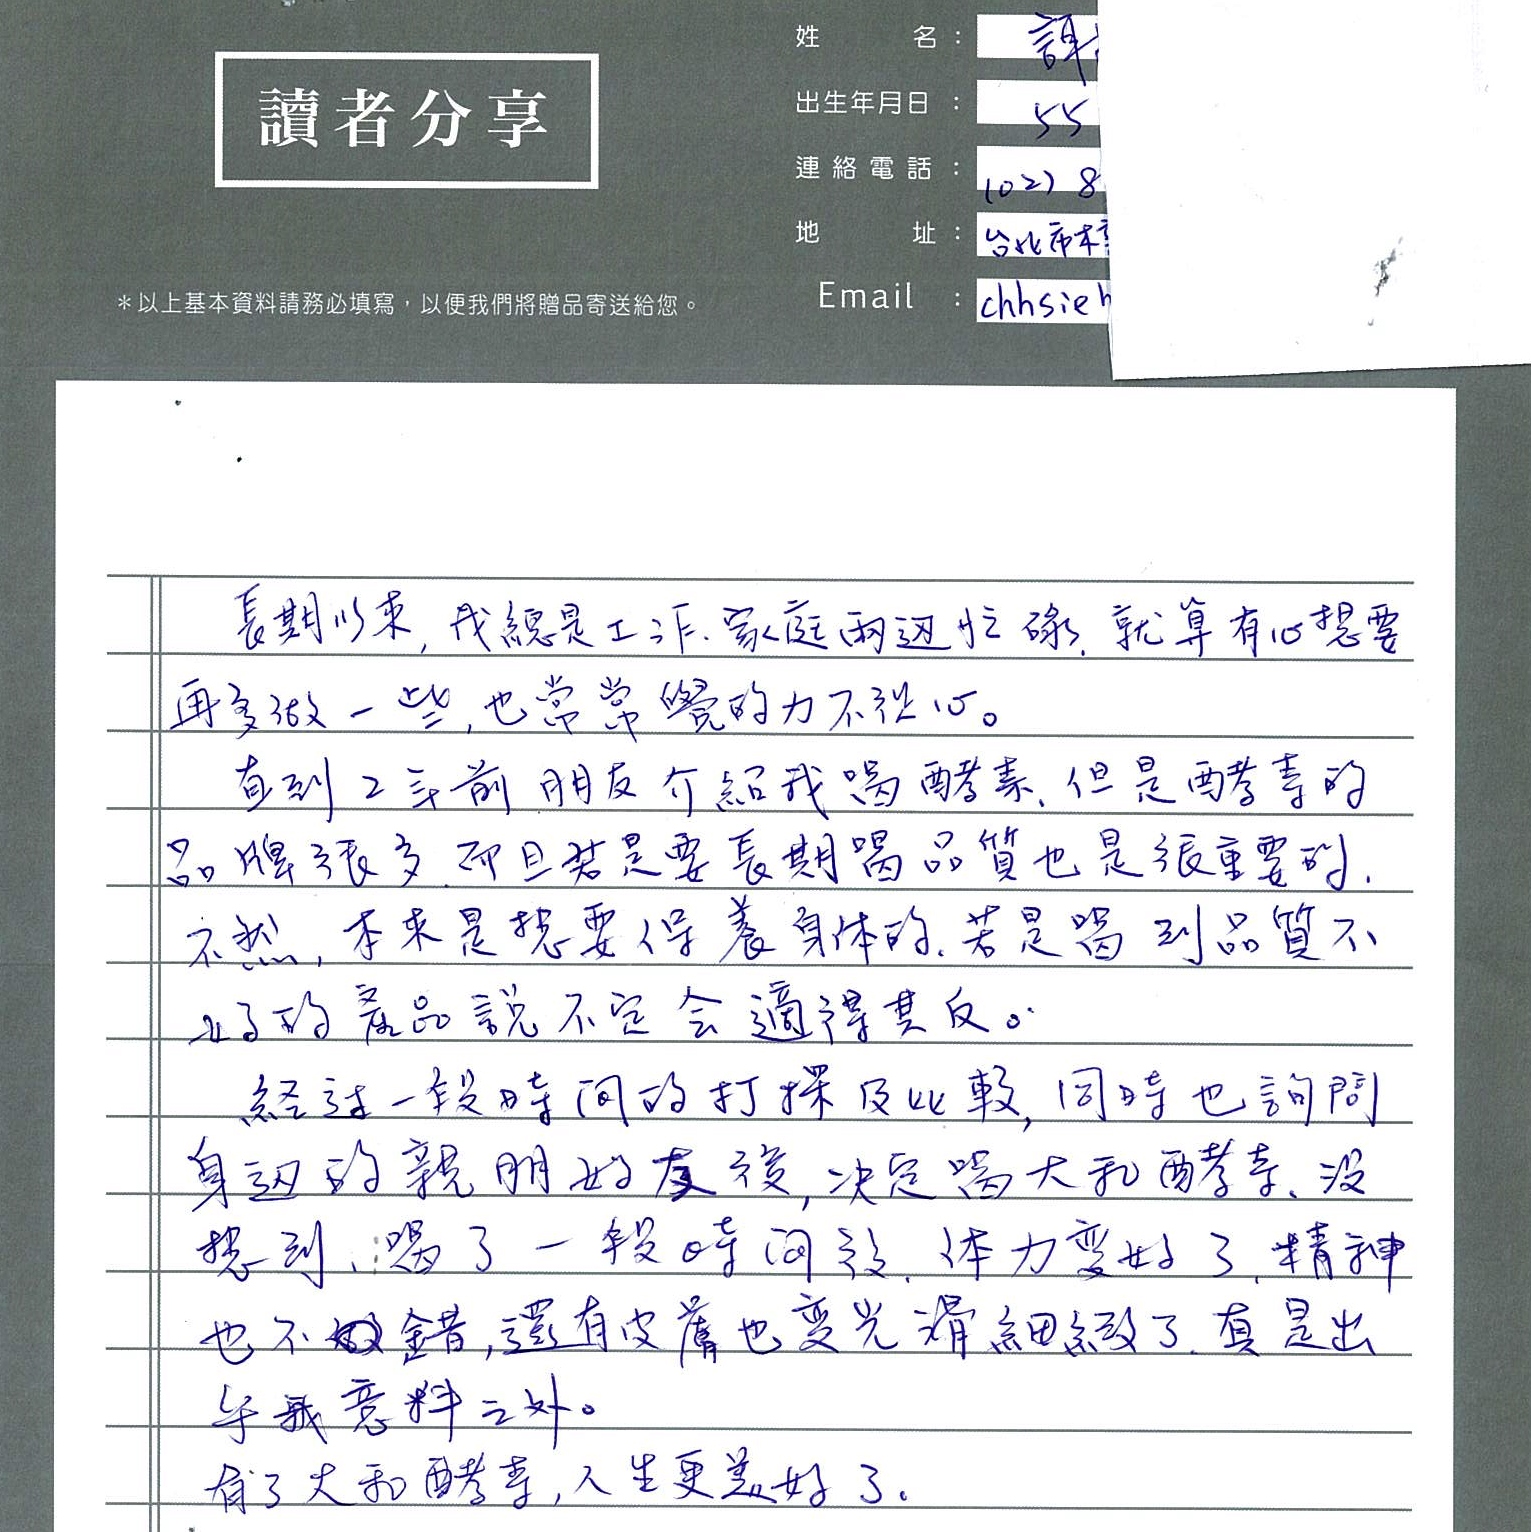 讀者分享
姓名：
出生年月日：55
連絡電話：(02) 8
地址：台北市木
Email：chhsieh
＊以上基本資料請務必填寫，以便我們將贈品寄送給您。
長期以來，我總是工作、家庭兩边忙碌，就算有心想要
再多做一些，也常常覺的力不從心。
直到2年前朋友介紹我喝酵素，但是酵素的
品牌很多，而且若是要長期喝品質也是很重要的，
不然，本來是想要保養身体的，若是喝到品質不
好的產品說不定会適得其反。
経过一段時间的打探及比較，同時也詢問
身边的親朋好友後，决定喝大和酵素，没
想到，喝了一段時间後，体力變好了，精神
也不錯，還有皮膚也變光滑細緻了，真是出
乎我意料之外。
有了大和酵素，人生更美好了。